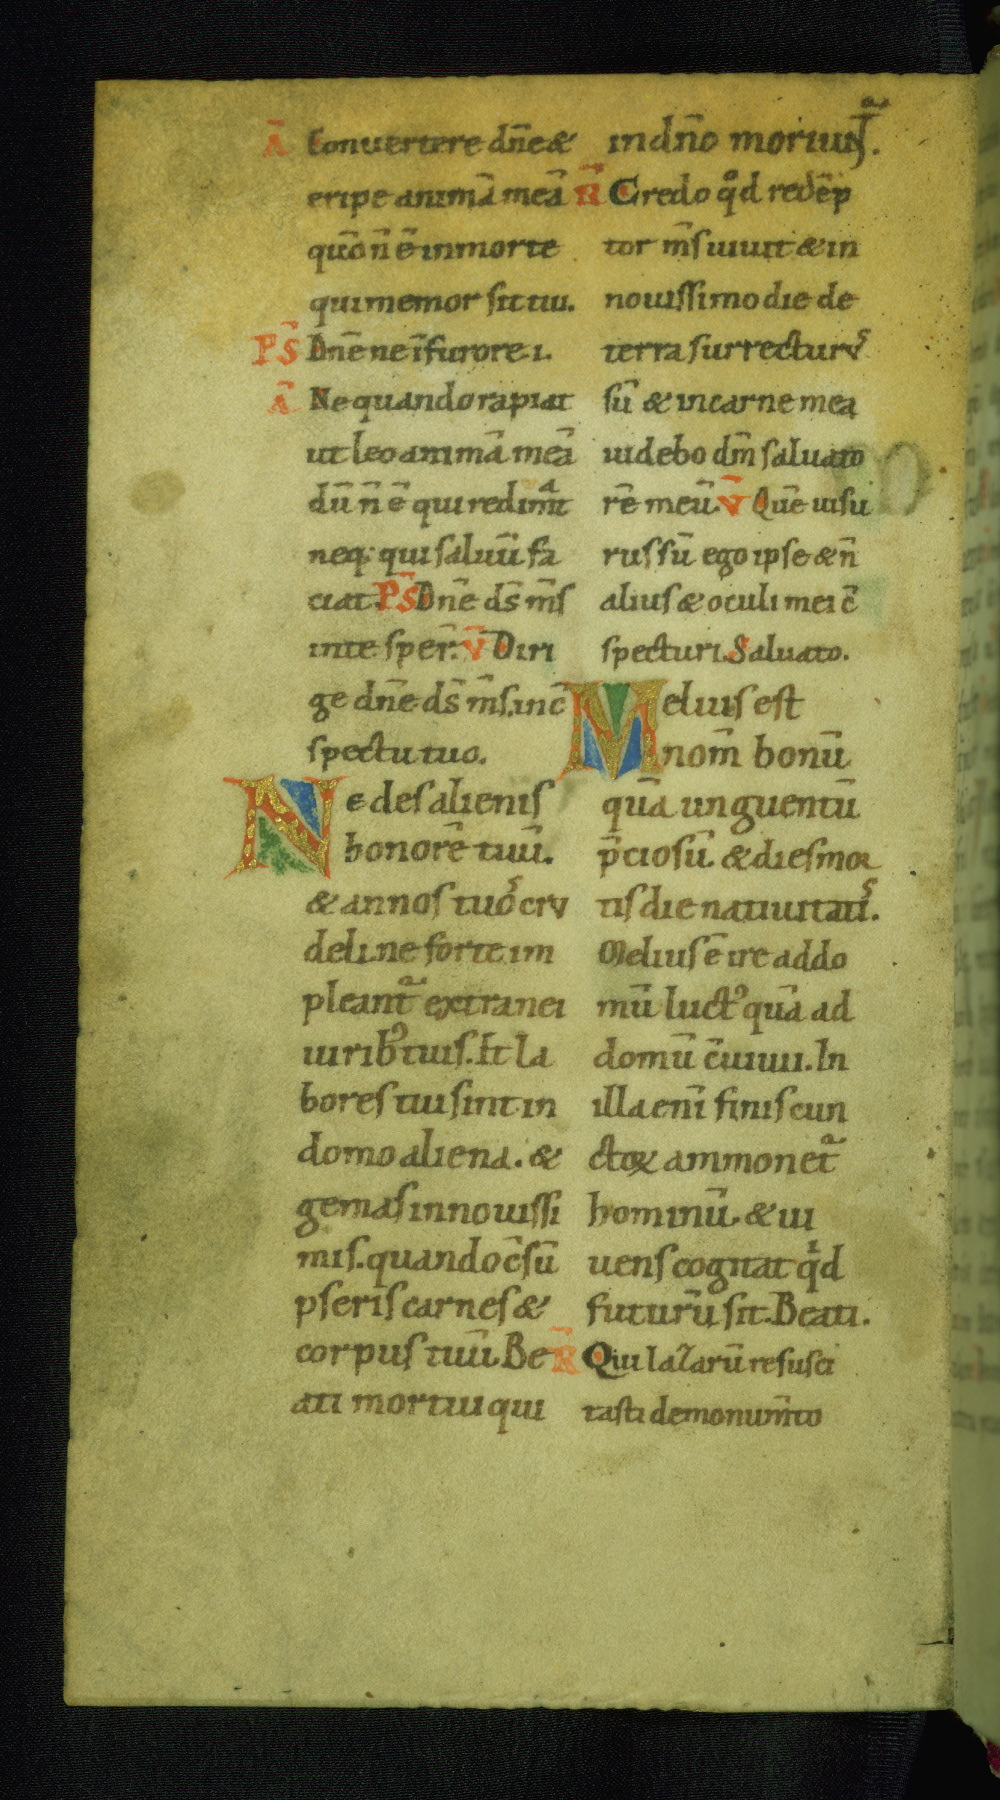 A̅ Conuertere dn̄e &
eripe animā meā
qūo n̄ ē in morte
qui memor sit tui.
P̅S Dn̄e ne ī furore. i.
A̅ Ne quando rapiat
ut leo animā meā
dū n̄ ē qui redimat
neq; qui saluū fa
ciat. P̅S Dn̄e ds̄ m̄s
in te sper̄. V̅ Diri
ge dn̄e ds̄ m̄s. in c̄
spectu tuo.
Ne des alienis
honorē tuū.
& annos tuos cru
deli. ne forte im
pleant᷑ extranei
uirib᷒ tuis. Et la
bores tui sint in
domo aliena. &
gemas in nouissi
mis. quando c̄sū
pseris carnes &
corpus tuū. Be
ati mortui qui
in dn̄o moriunt᷑.
R̅ Credo qͦd redēp
tor m̄s uiuit & in
nouissimo die de
terra surrectur᷒
sū & in carne mea
uidebo dm̄ saluato
rē meū. V̅ Quē uisu
rus sū ego ipse & n̄
alius & oculi mei c̄
specturi. Saluato.
Melius est
nom̄ bonū
quā unguentū
p̄ciosū. & dies mor
tis die natiuitatis.
Melius ē ire ad do
mū luct᷒ quā ad
domū c̄uiuii. In
illa eni̅ finis cun
ctoꝝ ammonet᷑
hominū. & ui
uens cogitat qͥd
futurū sit. Beati.
R̅ Qui lazarū resusci
tasti de monum̄to